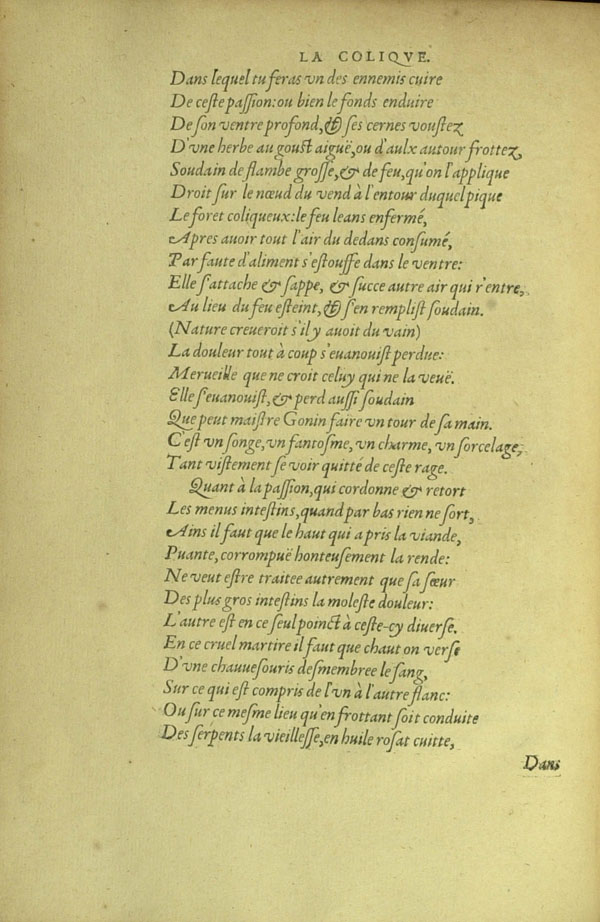 LA COLIQVE.
Dans lequel tu feras vn des ennemis cuire
De ceſte paſſion: ou bien le fonds enduire
De ſon ventre profond, & ſes cernes vouſtez
D'vne herbe au gouſt aiguë, ou d'aulx autour frottez,
Soudain de flambe groſſe, & de feu, qu'on l'applique
Droit ſur le nœud du vend à l'entour duquel pique
Le foret coliqueux: le feu leans enfermé,
Apres auoir tout l'air du dedans conſumé,
Par faute d'aliment s'eſtouffe dans le ventre:
Elle s'attache & ſappe, & ſucce autre air qui r'entre,
Au lieu du feu eſteint, & s'en rempliſt ſoudain.
(Nature creueroit s'il y auoit du vain)
La douleur tout à coup s'euanouiſt perdue:
Merueille que ne croit celuy qui ne la veuë.
Elle s'euanouiſt, & perd auſſi ſoudain
Que peut maiſtre Gonin faire vn tour de ſa main.
C'eſt vn ſonge, vn fantoſme, vn charme, vn ſorcelage,
Tant viſtement ſe voir quitté de ceſte rage.
Quant à la paſſion, qui cordonne & retort
Les menus inteſtins, quand par bas rien ne ſort,
Ains il faut que le haut qui a pris la viande,
Puante, corrompuë honteuſement la rende:
Ne veut eſtre traitee autrement que ſa ſœur
Des plus gros inteſtins la moleſte douleur:
L'autre eſt en ce ſeul poinct à ceſte-cy diuerſe.
En ce cruel martire il faut que chaut on verſe
D'vne chauueſouris deſmembree le ſang,
Sur ce qui eſt compris de l'vn à l'autre flanc:
Ou ſur ce meſme lieu qu'en frottant ſoit conduite
Des ſerpents la vieilleſſe, en huile roſat cuitte,
Dans